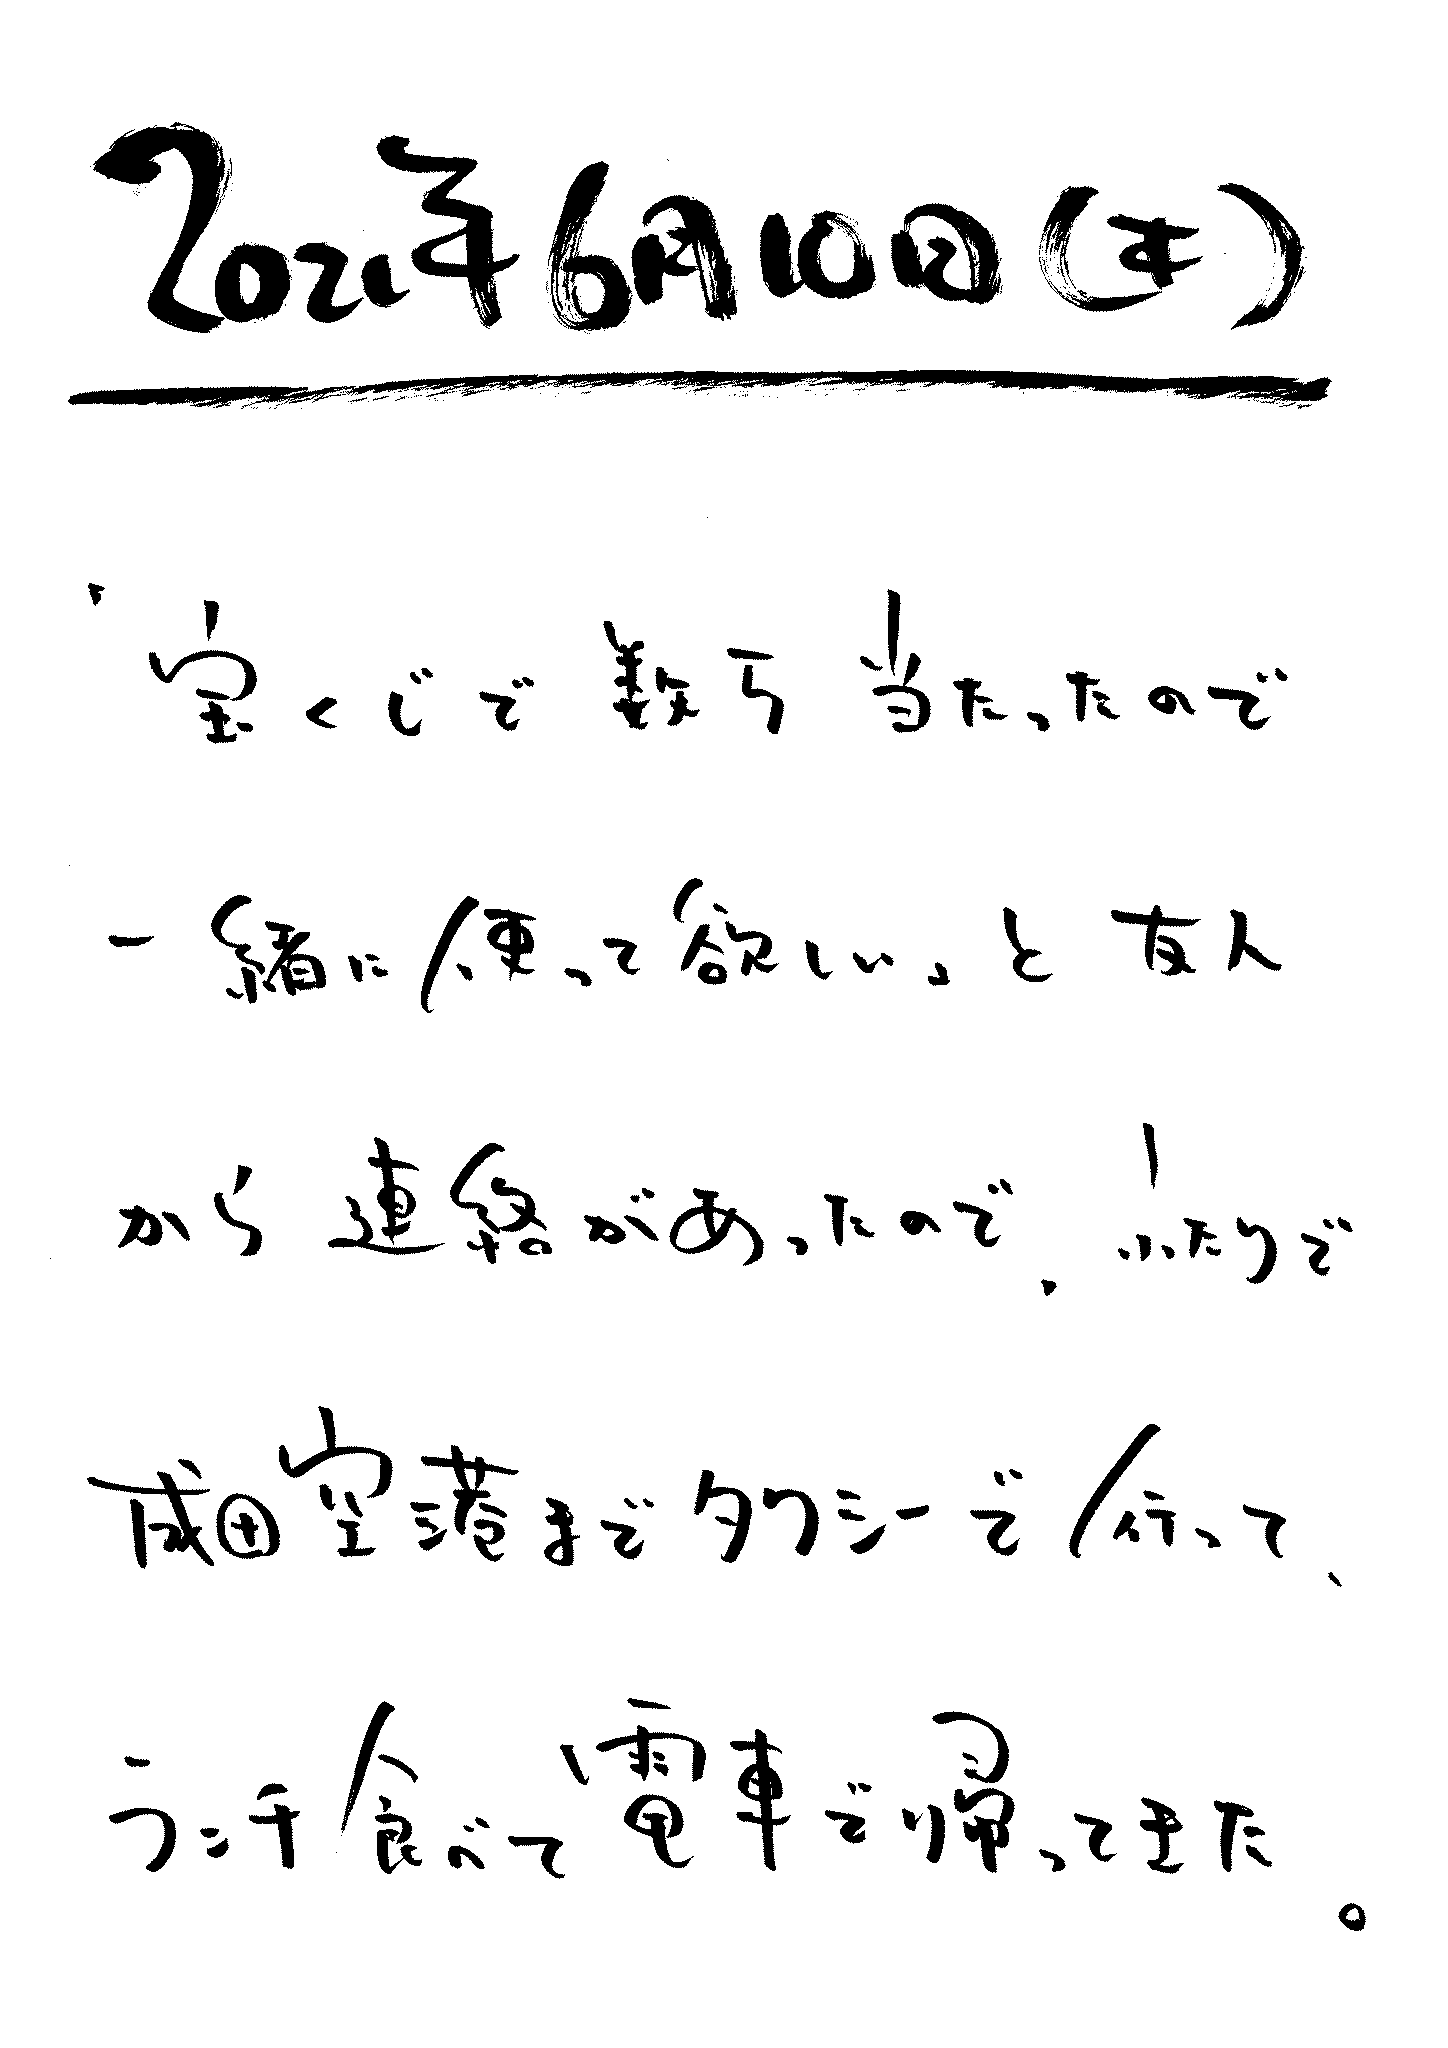 2021年6月10日(木)
「宝くじで数万当たったので
一緒に使って欲しい」と友人
から連絡があったので、ふたりで
成田空港までタクシーで行って、
ランチ食べて電車で帰ってきた。